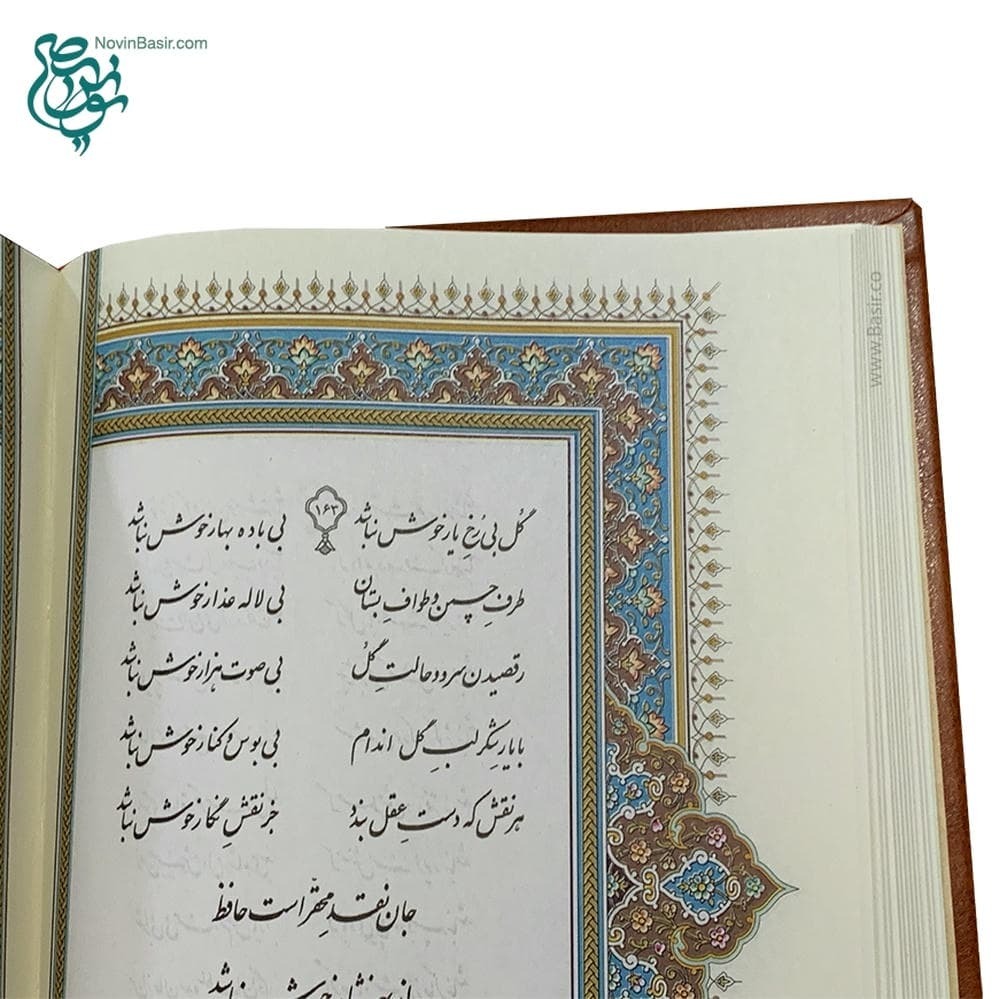 NovinBasir.com
www.Basir.co
۱۶۳
گل بی رخ یار خوش نباشد بی باده بهار خوش نباشد
طرف چمن و طواف بستان بی لاله عذار خوش نباشد
رقصیدن سرو و حالت گل بی صوت هزار خوش نباشد
با یار شکر لب گل اندام بی بوس و کنار خوش نباشد
هر نقش که دست عقل بندد جز نقش نگار خوش نباشد
جان نقد محقر است حافظ
از بهر نثار خوش نباشد